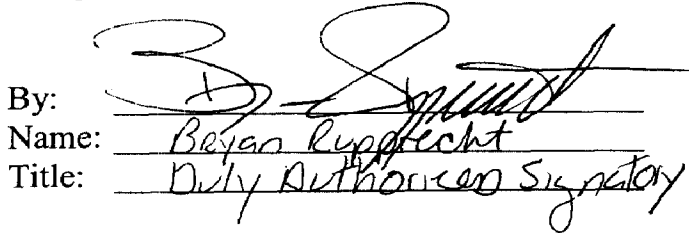 By:
Name: Bryan Rupprecht
Title: Duly Authorized Signatory